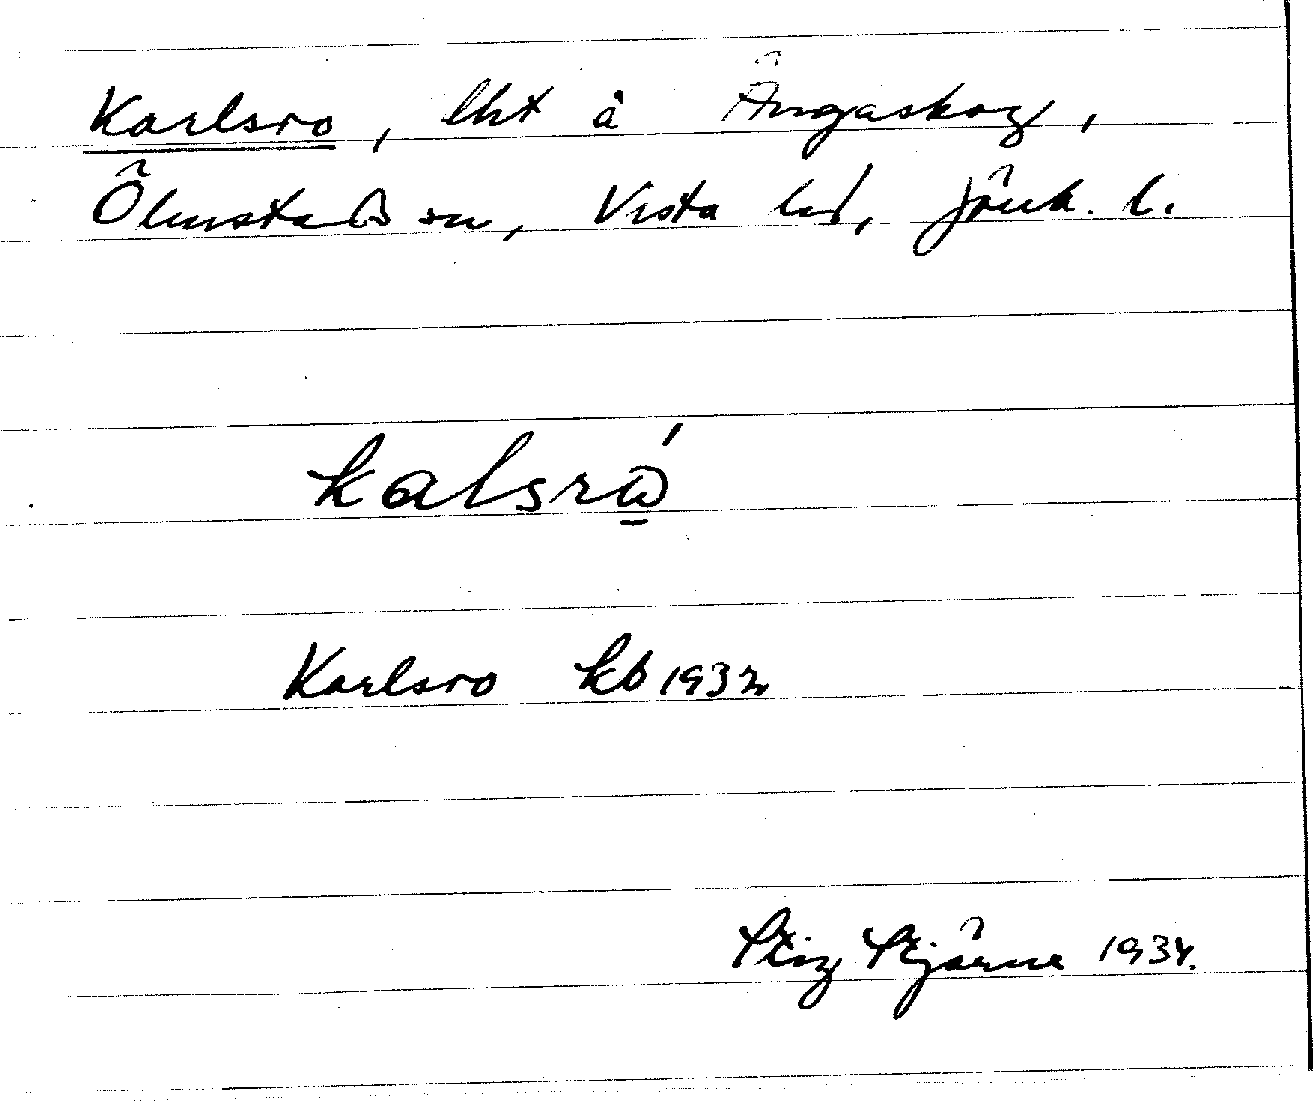 Karlsro, lht å Ängaskog,
Ölmstads sn, Vista hd, Jönk. l.
kalsrώ
Karlsro kb 1932
Stig Stjärne 1934.